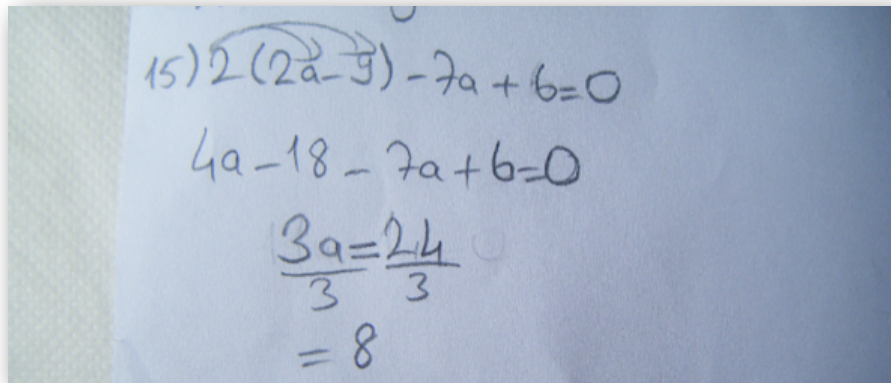 15) 2 (2a - 9) - 7a + 6 = 0
4a - 18 - 7a + 6 = 0
3a = 24
3 3
= 8